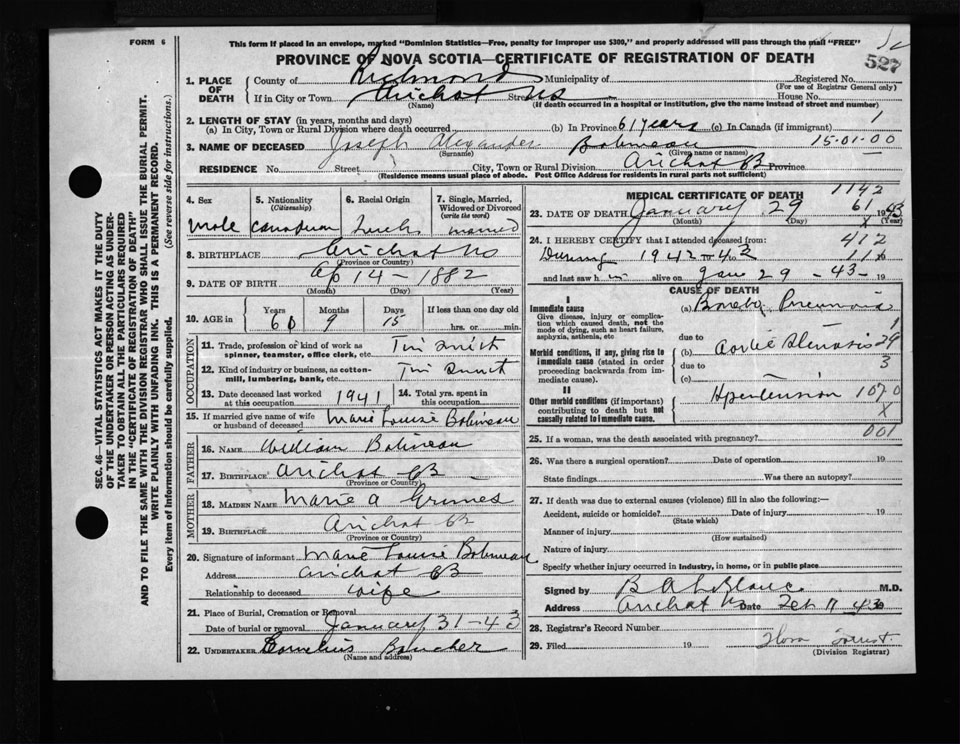 FORM 6
This form if placed in an envelope, marked "Dominion Statistics—Free, penalty for improper use $300," and properly addressed will pass through the mail "FREE"
PROVINCE OF NOVA SCOTIA—CERTIFICATE OF REGISTRATION OF DEATH
527
1. PLACE OF DEATH
County of Richmond Municipality of Registered No.
(For use of Registrar General only)
If in City or Town Arichat NS Street House No.
(Name) (If death occurred in a hospital or institution, give the name instead of street and number)
2. LENGTH OF STAY (in years, months and days)
(a) In City, Town or Rural Division where death occurred (b) In Province 61 years (c) In Canada (if immigrant) 1
3. NAME OF DECEASED Joseph Alexander Bobineau 15·01·00
(Surname) (Given name or names)
RESIDENCE No. Street City, Town or Rural Division Arichat CB Province
(Residence means usual place of abode. Post Office Address for residents in rural parts not sufficient)
SEC. 46—VITAL STATISTICS ACT MAKES IT THE DUTY
OF THE UNDERTAKER OR PERSON ACTING AS UNDER-
TAKER TO OBTAIN ALL THE PARTICULARS REQUIRED
IN THE "CERTIFICATE OF REGISTRATION OF DEATH"
AND TO FILE THE SAME WITH THE DIVISION REGISTRAR WHO SHALL ISSUE THE BURIAL PERMIT.
WRITE PLAINLY WITH UNFADING INK. THIS IS A PERMANENT RECORD.
Every item of information should be carefully supplied. (See reverse side for instructions.)
4. Sex
Male
5. Nationality
(Citizenship)
Canadian
6. Racial Origin
7. Single, Married, Widowed or Divorced
(write the word)
Married
8. BIRTHPLACE Arichat NS
(Province or Country)
9. DATE OF BIRTH Ap 14 - 1882
(Month) (Day) (Year)
10. AGE in Years 60 Months 9 Days 15 If less than one day old
hrs. or min.
OCCUPATION
11. Trade, profession or kind of work as
spinner, teamster, office clerk, etc. Tin Smith
12. Kind of industry or business, as cotton-
mill, lumbering, bank, etc. Tin Smith
13. Date deceased last worked
at this occupation 1941
14. Total yrs. spent in
this occupation
15. If married give name of wife
or husband of deceased Marie Louise Bobineau
FATHER
16. NAME William Bobineau
17. BIRTHPLACE Arichat CB
(Province or Country)
MOTHER
18. MAIDEN NAME Marie A Grimes
19. BIRTHPLACE Arichat CB
(Province or Country)
20. Signature of informant Marie Louise Bobineau
Address Arichat CB
Relationship to deceased Wife
21. Place of Burial, Cremation or Removal
Date of burial or removal January 31-43
22. UNDERTAKER Cornelius Boucher
(Name and address)
MEDICAL CERTIFICATE OF DEATH
1142
61
23. DATE OF DEATH January 29 1943
(Month) (Day) (Year)
X
24. I HEREBY CERTIFY that I attended deceased from:
412
During 1942 to 43
and last saw h im alive on Jan 29 - 43 - 19
CAUSE OF DEATH
I
Immediate cause
Give disease, injury or complica-
tion which caused death, not the
mode of dying, such as heart failure,
asphyxia, asthenia, etc
(a) Pneumonia
due to
1
Morbid conditions, if any, giving rise to
immediate cause (stated in order
proceeding backwards from im-
mediate cause).
(b) Aortic Stenosis 29
due to 3
(c)
II
Other morbid conditions (if important)
contributing to death but not
causally related to immediate cause.
Hypertension 1070
X
25. If a woman, was the death associated with pregnancy? 001
26. Was there a surgical operation? Date of operation 19
State findings Was there an autopsy?
27. If death was due to external causes (violence) fill in also the following:—
Accident, suicide or homicide? Date of injury 19
(State which)
Manner of injury
(How sustained)
Nature of injury
Specify whether injury occurred in Industry, in home, or in public place
Signed by B A LeBlanc M.D.
Address Arichat NS Date Feb 11 43
28. Registrar's Record Number
29. Filed 19 Flora
(Division Registrar)